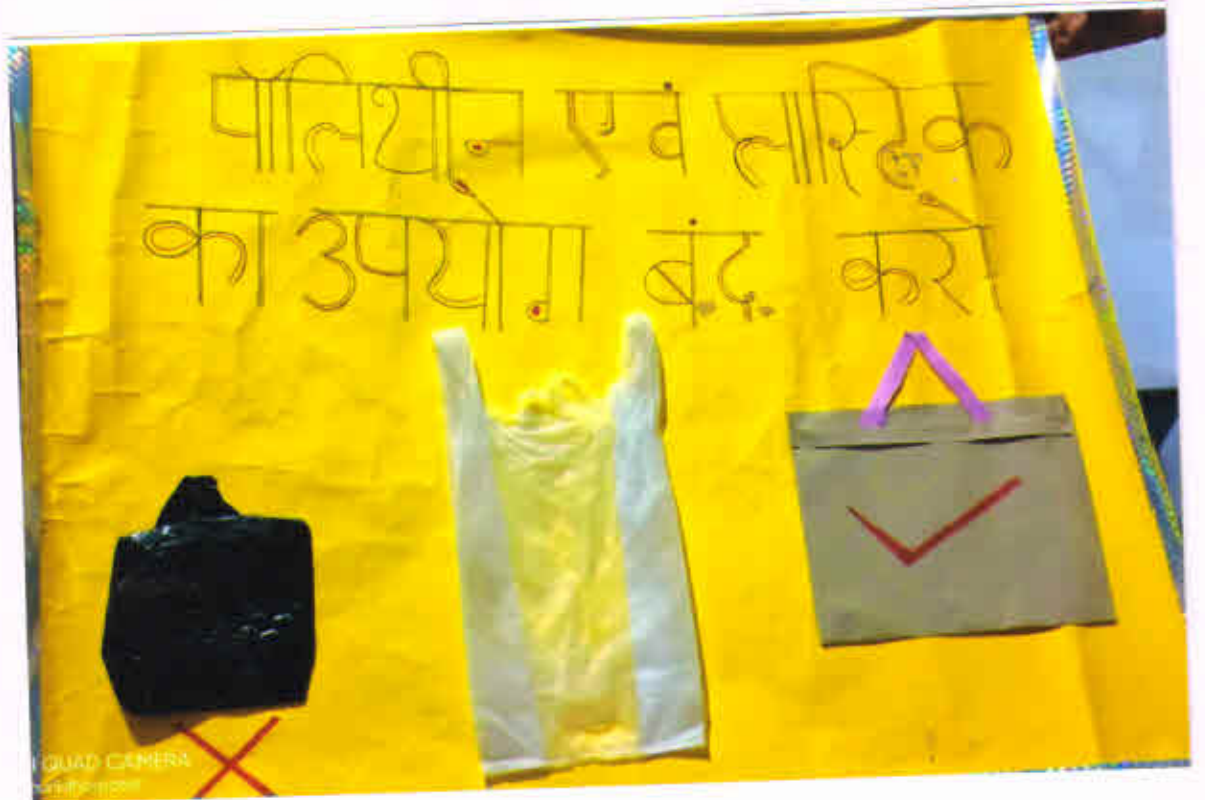 पॉलिथीन एवं प्लास्टिक
का उपयोग बंद करे
QUAD CAMERA